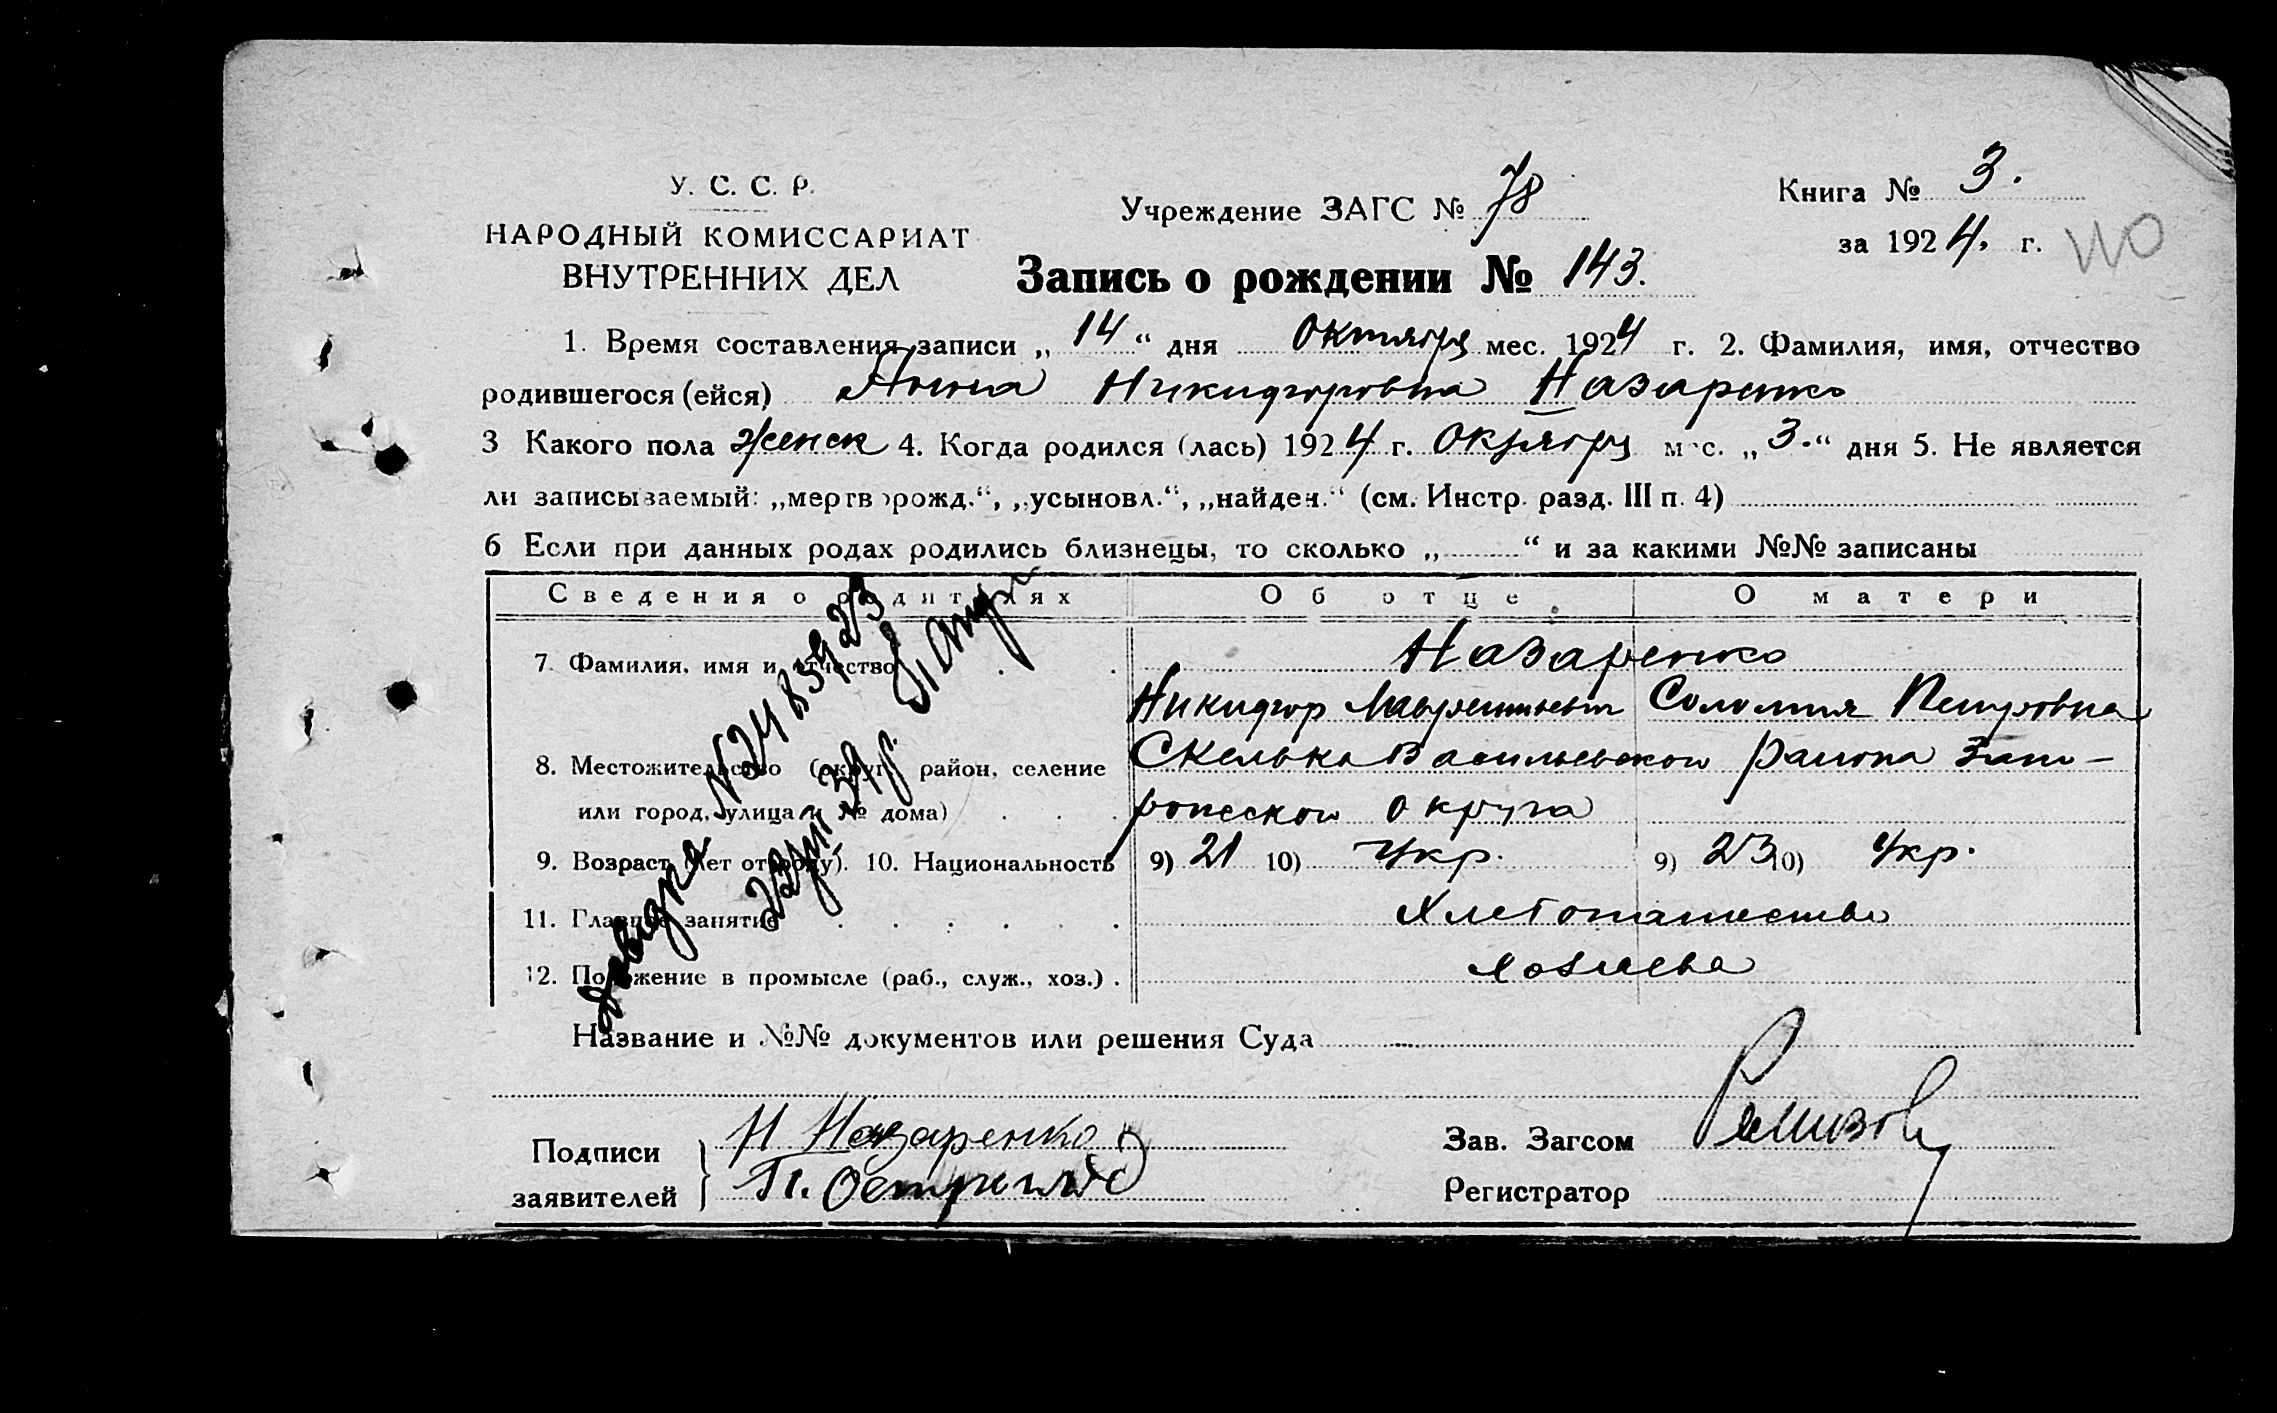 У. С. С. Р.
НАРОДНЫЙ КОМИССАРИАТ
ВНУТРЕННИХ ДЕЛ
Учреждение ЗАГС № 78
Книга № 3.
за 1924. г.
Запись о рождении № 143.
1. Время составления записи „14“ дня Октября мес. 1924 г. 2. Фамилия, имя, отчество
родившегося (ейся) Анна Никифоровна Назаренко
3 Какого пола женск 4. Когда родился (лась) 1924 г. Октября мес. „3.“ дня 5. Не является
ли записываемый: „мертворожд.“, „усыновл.“, „найден.“ (см. Инстр. разд. III п. 4)
6 Если при данных родах родились близнецы, то сколько „ “ и за какими №№ записаны
Сведения о родителях Об отце О матери
7. Фамилия, имя и отчество Назаренко
Никифор Лаврентьевич Соломия Петровна
8. Местожительство (округ, район, селение Скелька Васильевского района Запо-
или город, улица и № дома) рожского округа
9. Возраст (лет от роду). 10. Национальность 9) 21 10) Укр. 9) 23 10) Укр.
11. Главное занятие Хлебопашество
12. Положение в промысле (раб., служ., хоз.) хозяева
Название и №№ документов или решения Суда
Подписи заявителей Н Назаренко
П.
Зав. Загсом Ремизов
Регистратор